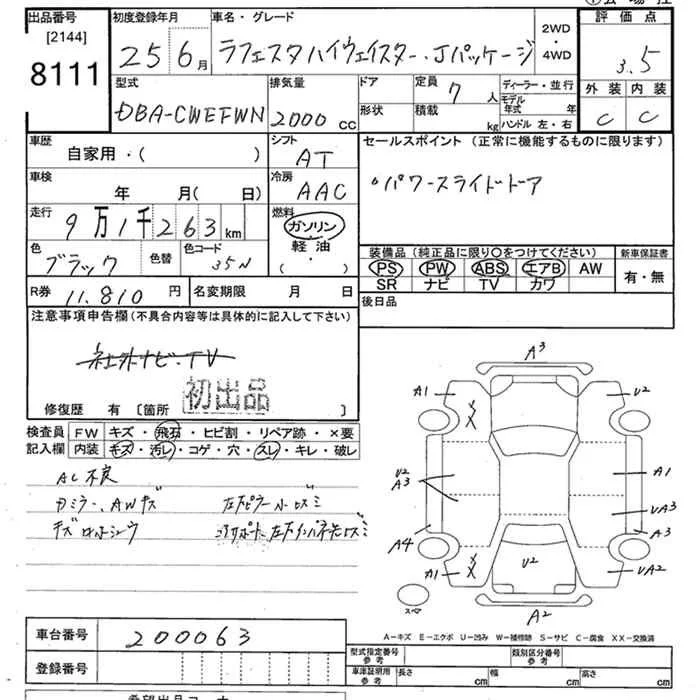 出品番号
[2144]
8111
初度登録年月
25 6月
車名・グレード
ラフェスタハイウェイスター・Jパッケージ
2WD
・
4WD
評価点
3.5
外装 内装
C C
型式
DBA-CWEFWN
排気量
2000 cc
ドア
形状
定員 7 人
積載 kg
ディーラー・並行
モデル年式 年
ハンドル 左・右
車歴
自家用・( )
シフト
AT
セールスポイント (正常に機能するものに限ります)
・パワースライドドア
車検
年 月( 日)
冷房
AAC
走行
9万1千263km
燃料
ガソリン
軽油
( ・ )
色
ブラック
色替
色コード
35N
装備品 (純正品に限り○をつけてください)
PS PW ABS エアB AW
SR ナビ TV カワ
新車保証書
有・無
R券 11.810 円
名変期限 月 日
後日品
注意事項申告欄 (不具合内容等は具体的に記入して下さい)
社外ナビ・TV
初出品
修復歴 有 [箇所 ]
検査員
記入欄
FW キズ・飛石・ヒビ割・リペア跡・×要
内装 キズ・汚レ・コゲ・穴・スレ・キレ・破レ
AC不良
カミラー、AWキズ
A3
A1
U2
U2
A3
A1
UA3
A3
A4
A1
U2
UA2
A2
スペア
A-キズ E-エクボ U-凹み W-補修跡 S-サビ C-腐食 XX-交換済
車台番号 200063
登録番号
型式指定番号
参考
類別区分番号
参考
車庫証明用
参考
長さ cm
幅 cm
高さ cm